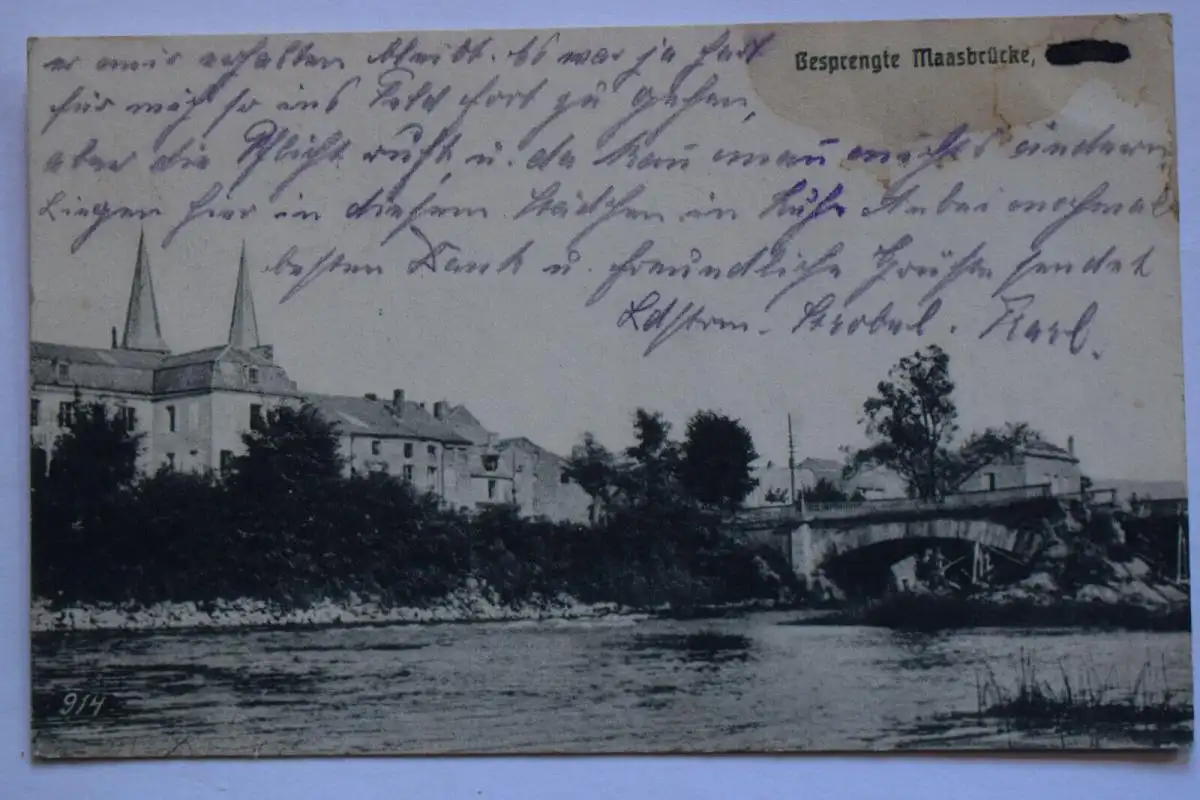 Gesprengte Maasbrücke,
er mir erhalten bleibt. Es war ja hart
für mich so ins Feld fort zu gehen,
aber die Pflicht ruft u. da kan man nichts ändern
Liegen hier in diesem Städchen in Ruhe Anbei nochmal
besten Dank u. freundliche Grüße sendet
Ldstrm. Strobel. Karl.
914